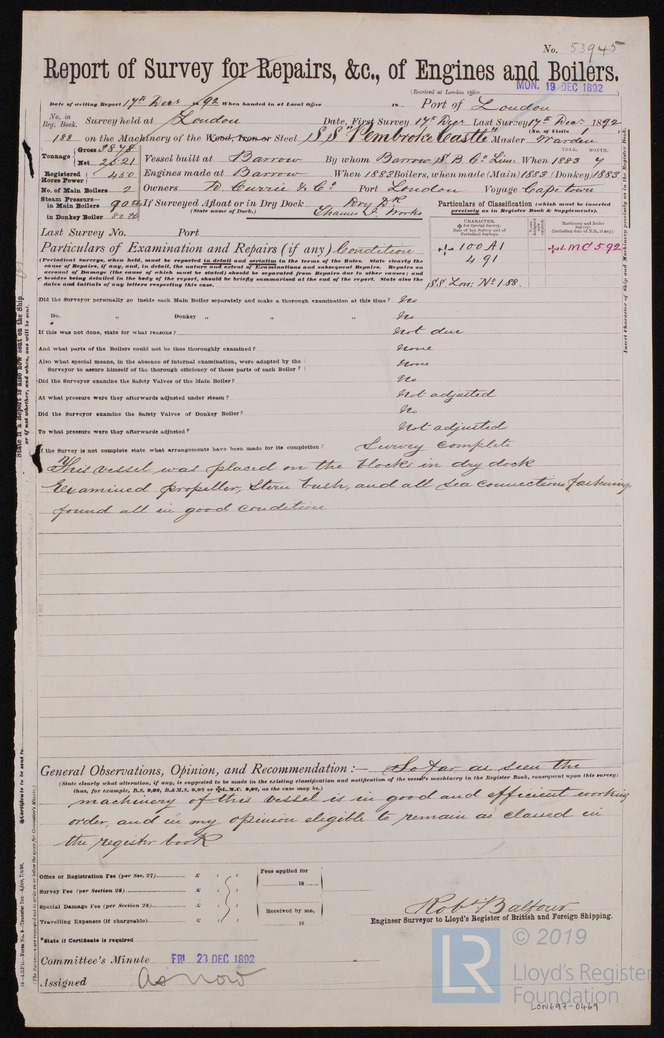 No. 53945
Report of Survey for Repairs, &c., of Engines and Boilers.
(Received at London Office MON. 19 DEC 1892
Date of writing Report 17th Decr 1892 When handed in at Local Office 18 Port of London
No. in Reg. Book. Survey held at London Date, First Survey 17th Decr Last Survey 17th Decr 1892
(No. of Visits 1
188 on the Machinery of the Wood, Iron or Steel S.S. "Pembroke Castle" Master Warden
Tonnage Gross 3878 Net 2521 Vessel built at Barrow By whom Barrow S. B. Co. Lim. When 1883 7
YEAR. MONTH.
Registered Horse Power 450 Engines made at Barrow When 1883 Boilers, when made (Main) 1883 (Donkey) 1883
No. of Main Boilers 2 Owners D. Currie & Co. Port London Voyage Cape town
Steam Pressure— in Main Boilers 90 If Surveyed Afloat or in Dry Dock Dry Dk
in Donkey Boiler 80 (State name of Dock.) Thames I. Works
Particulars of Classification (which must be inserted precisely as in Register Book & Supplements).
CHARACTER.
Last Survey No. Port
100 A1 LMC 5 92
4 91
SS Lon: No 1 88.
Particulars of Examination and Repairs (if any) Condition
(Periodical Surveys, when held, must be reported in detail and seriatim in the terms of the Rules. State clearly the
cause of Repairs, if any, and, in detail, the nature and extent of Examinations and subsequent Repairs. Repairs on
account of Damage (the cause of which must be stated) should be separated from Repairs due to other causes; and
besides being detailed in the body of the report, should be briefly summarised at the end of the report. State also the
dates and initials of any letters respecting this case.
Did the Surveyor personally go inside each Main Boiler separately and make a thorough examination at this time? No
Do. " Donkey " " " No
If this was not done, state for what reasons? Not due
And what parts of the Boilers could not be thus thoroughly examined? None
Also what special means, in the absence of internal examination, were adopted by the
Surveyor to assure himself of the thorough efficiency of those parts of each Boiler? None
Did the Surveyor examine the Safety Valves of the Main Boiler? No
At what pressure were they afterwards adjusted under steam? Not adjusted
Did the Surveyor examine the Safety Valves of Donkey Boiler? No
To what pressure were they afterwards adjusted? Not adjusted
If the Survey is not complete state what arrangements have been made for its completion? Survey complete
This vessel was placed on the blocks in dry dock
Examined propeller, Stern bush, and all sea connections fastenings
found all in good condition
General Observations, Opinion, and Recommendation:— So far as seen the
(State clearly what alteration, if any, is suggested to be made in the existing classification and notification of the vessel's machinery in the Register Book, consequent upon this survey)
machinery of this vessel is in good and efficient working
order, and in my opinion eligible to remain as classed in
the register book
Office or Registration Fee (per Sec. 27) £ : :
Survey Fee (per Section 28) £ : :
Special Damage Fee (per Section 28) £ : :
Travelling Expenses (if chargeable) £ : :
Fees applied for
18
Received by me,
18
Robt Balfour
Engineer Surveyor to Lloyd's Register of British and Foreign Shipping.
*State if Certificate is required
Committee's Minute FRI 23 DEC 1892
Assigned as now
LR © 2019
Lloyd's Register
Foundation
LON697-0469